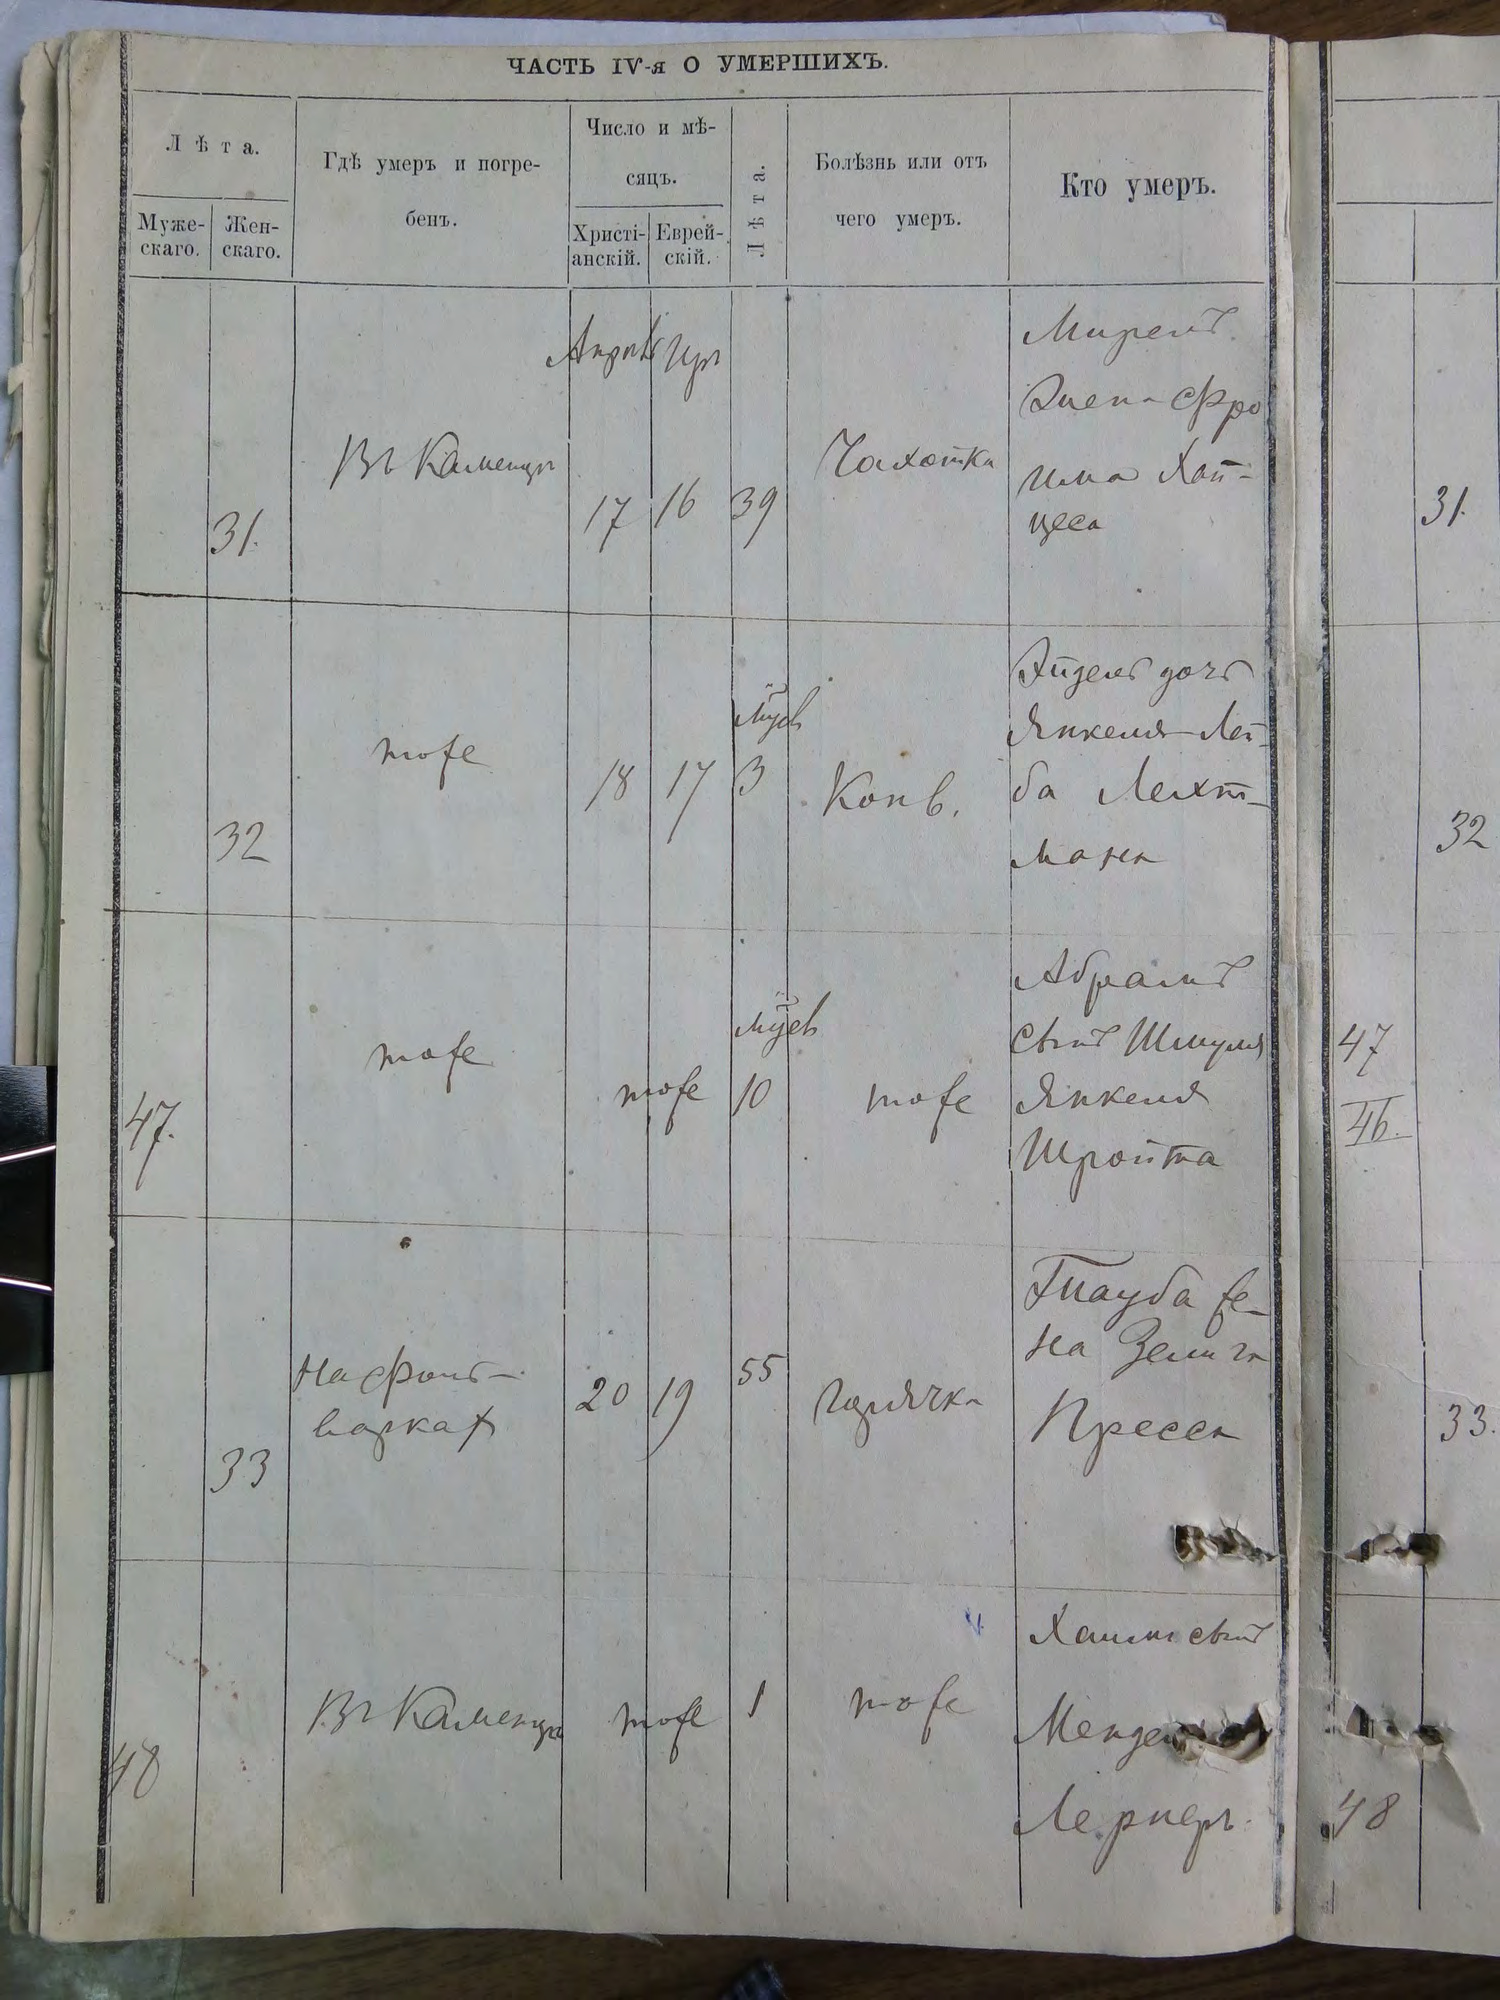 ЧАСТЬ IV-я О УМЕРШИХЪ.
Лѣта.
Муже-
скаго.
Жен-
скаго.
Гдѣ умеръ и погре-
бенъ.
Число и мѣ-
сяцъ.
Христі-
анскій.
Еврей-
скій.
Лѣта.
Болѣзнь или отъ
чего умеръ.
Кто умеръ.
31.
Въ Каменцѣ
17
16
39
Чахотка
Жена Фро
има
цеса
31.
32
тоже
18
17
3
Конв.
Эйдель дочь
Янкеля Лей-
ба Лехт-
мана
32
47.
тоже
тоже
10
тоже
Абрамъ
сынъ Шмуля
Янкеля
Шройта
47
46.
33
На фоль-
варках
20
19
55
горячка
Тауба же-
на Зелига
Пресса
33.
48
Въ Каменцѣ
тоже
1
тоже
Хаимъ сынъ
Мендел
Лернеръ.
48